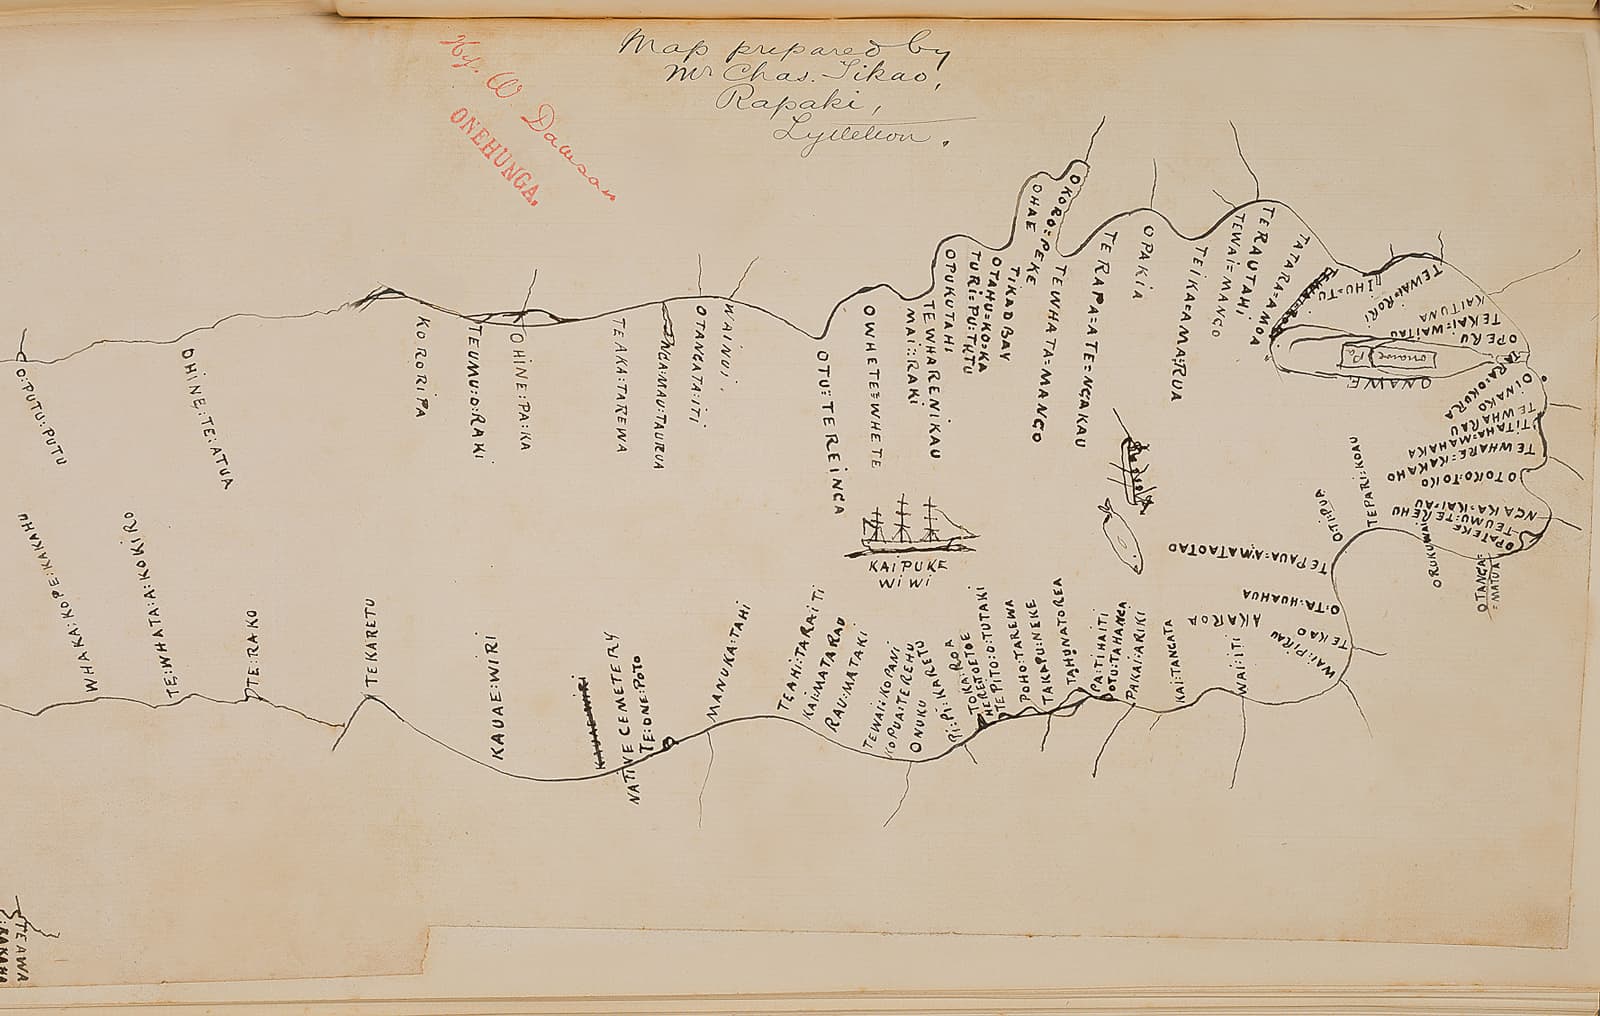 Map prepared by
Mr Chas. Tikao,
Rapaki,
Lyttelton.
W. Dawson
ONEHUNGA.
O:PUTU:PUTU
OHINE:TE:ATUA
KORORIPA
TEUMU:O:RAKI
OHINE:PA:KA
TEAKA:TAREWA
OTANGATA:ITI
WAINUI.
OTU:TEREINGA
OWHETE=WHETE
MAI:RAKI
TEWHARENIKAU
OPUKUTAHI
TURI=PU:TUTU
OTAHU=KO=KA
TIKAO BAY
OHAE
OKORO=PEKE
TEWHATA=MANGO
TERAPA=ATE=NGAKAU
OPAKIA
TEIKA=AMARUA
TEWAI=MANGO
TERAUTAHI
TATARA=AMOA
IHU=TU
TEWAI=RORI
KAITUNA
TEKAI=WAITAU
OPERU
onawe Pa
ONAWE
RA:OKURA
OINAKO
TEWHARAU
TITAHA=MAHAKA
TEWHARE=KAKAHO
OTOKO=TOKO
NGAKA=KAI=AU
TEUMU:TEREHU
OPATEKE
OTANGA=
=MATUA
ORUKUWAI
TEPARI:KOAU
OTIIPUA
TEPAUA=AMATAOTAO
O:TA:HUAHUA
TEKAO
WAI:PIRAU
AKAROA
WAI:ITI
KAI:TANGATA
PAKAI:ARIKI
OTU:TAHANGA
PA:TIHAITI
TAHUNATOREA
TAKAPU:NEKE
POHO:TAREWA
TEPITO:O:TUTAKI
PI:PI:KARETU
ONUKU
KOPUA:TEREHU
TEWAI:KOPANI
RAU:MATAKI
KAI:MATARAU
TEAHI:TARAITI
KAIPUKE
WIWI
MANUKA:TAHI
TE:ONE:POTO
NATIVE CEMETERY
KAUAE:WIRI
KAUAE:WIRI
TEKARETU
TE:RAKO
TE:WHATA:A:KOKIRO
WHAKA:KOPE:KAKAHU
TEAWA